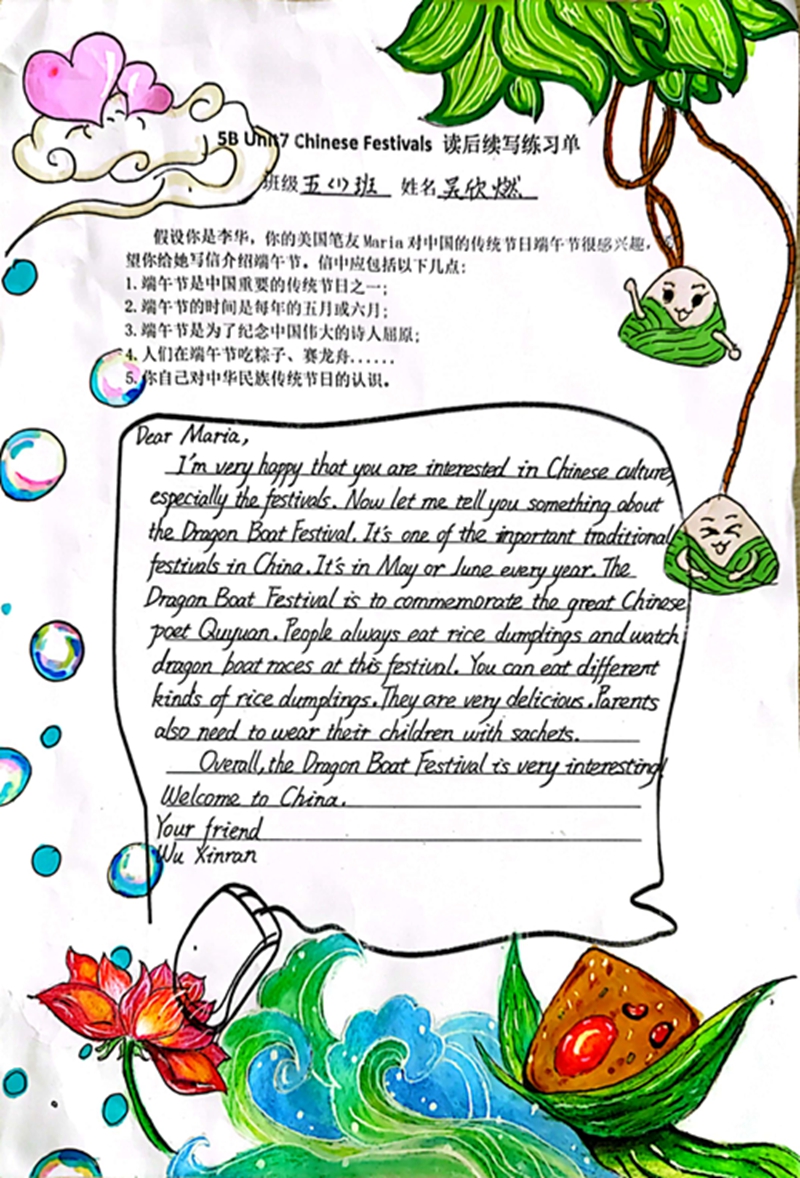 5B Unit7 Chinese Festivals 读后续写练习单
班级 五(1)班 姓名 吴欣燃
假设你是李华，你的美国笔友Maria对中国的传统节日端午节很感兴趣，
望你给她写信介绍端午节。信中应包括以下几点：
1.端午节是中国重要的传统节日之一；
2.端午节的时间是每年的五月或六月；
3.端午节是为了纪念中国伟大的诗人屈原；
4.人们在端午节吃粽子、赛龙舟......
5.你自己对中华民族传统节日的认识。
Dear Maria,
I'm very happy that you are interested in Chinese culture,
especially the festivals. Now let me tell you something about
the Dragon Boat Festival. It's one of the important traditional
festivals in China. It's in May or June every year. The
Dragon Boat Festival is to commemorate the great Chinese
poet Quyuan. People always eat rice dumplings and watch
dragon boat races at this festival. You can eat different
kinds of rice dumplings. They are very delicious. Parents
also need to wear their children with sachets.
Overall, the Dragon Boat Festival is very interesting!
Welcome to China.
Your friend
Wu Xinran